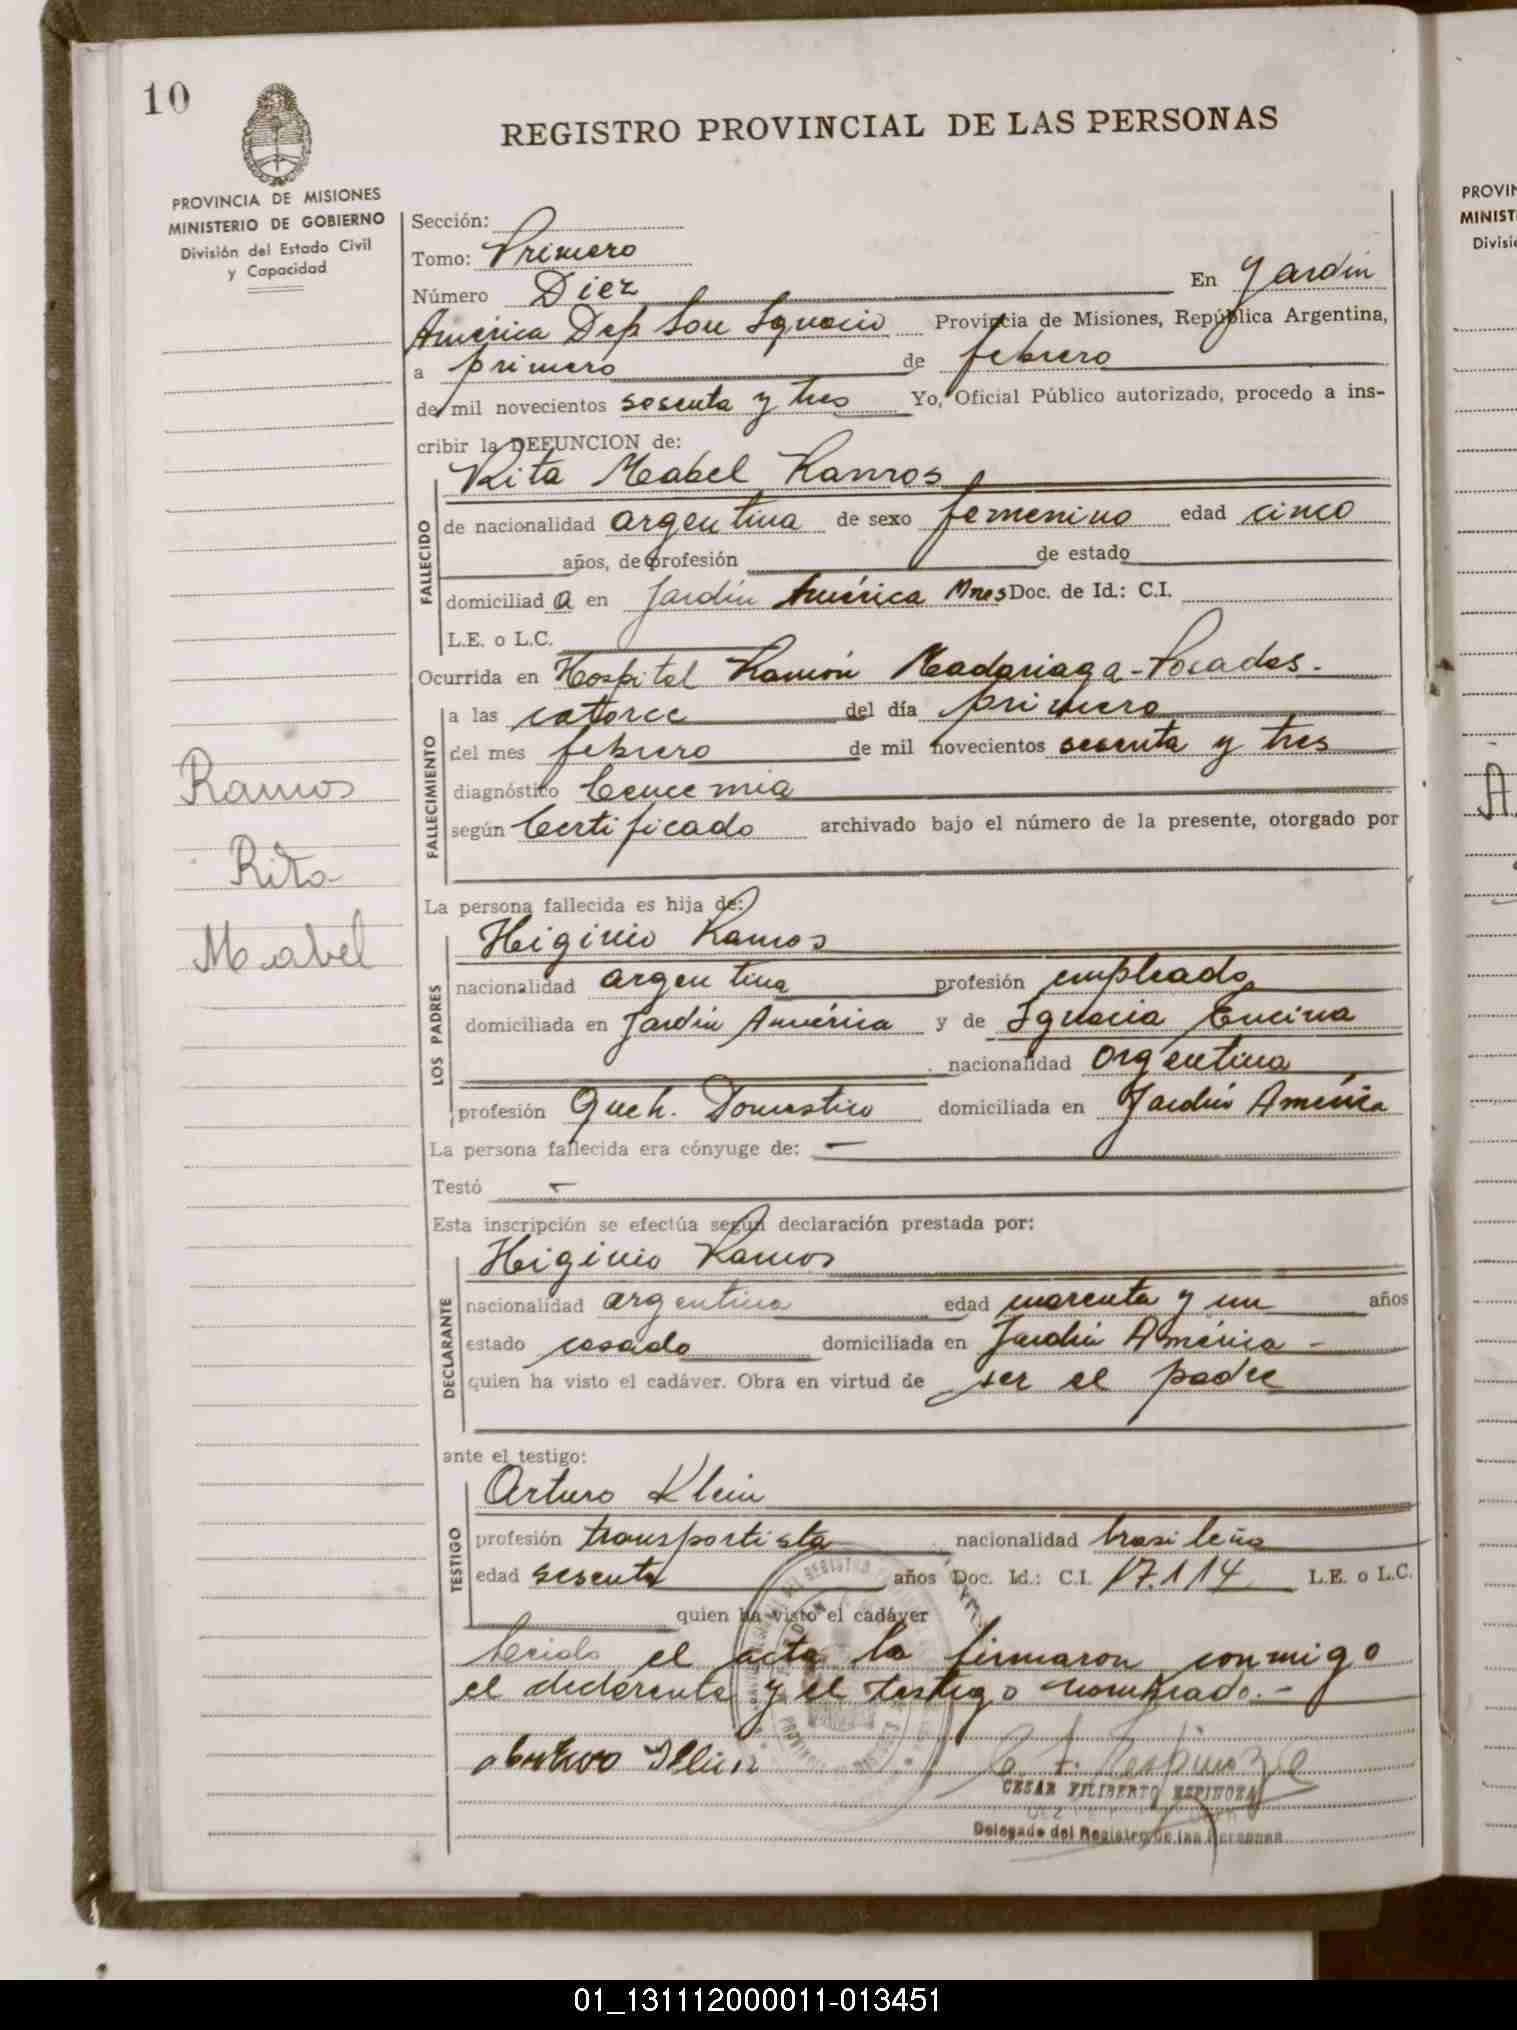 10
REGISTRO PROVINCIAL DE LAS PERSONAS
PROVINCIA DE MISIONES
MINISTERIO DE GOBIERNO
División del Estado Civil
y Capacidad
Sección:
Tomo: Primero
Número Diez En Jardín
América Dep San Ignacio Provincia de Misiones, República Argentina,
a primero de febrero
de mil novecientos sesenta y tres Yo, Oficial Público autorizado, procedo a ins-
cribir la DEFUNCION de:
Rita Mabel Ramos
FALLECIDO
de nacionalidad argentina de sexo femenino edad cinco
años, de profesión de estado
domiciliad a en Jardín América Mnes Doc. de Id.: C.I.
L.E. o L.C.
Ocurrida en Hospital Ramón Madariaga - Posadas -
FALLECIMIENTO
a las catorce del día primero
del mes febrero de mil novecientos sesenta y tres
diagnóstico Leucemia
según Certificado archivado bajo el número de la presente, otorgado por
Ramos
Rita
Mabel
La persona fallecida es hija de:
Higinio Ramos
LOS PADRES
nacionalidad argentina profesión empleado
domiciliada en Jardín América y de Ignacia Encina
nacionalidad argentina
profesión Queh. Domestico domiciliada en Jardín América
La persona fallecida era cónyuge de: —
Testó -
Esta inscripción se efectúa según declaración prestada por:
Higinio Ramos
DECLARANTE
nacionalidad argentina edad cuarenta y un años
estado casado domiciliada en Jardín América -
quien ha visto el cadáver. Obra en virtud de ser el padre
ante el testigo:
Arturo Klein
TESTIGO
profesión transportista nacionalidad brasileña
edad sesenta años Doc. Id.: C.I. 17.114 L.E. o L.C.
quien ha visto el cadáver
Leida el acta la firmaron conmigo
el declarante y el testigo nombrado. -
CESAR FILIBERTO ESPINOZA
Delegado del Registro de las Personas
PROVIN
MINIST
Divisi
01_131112000011-013451